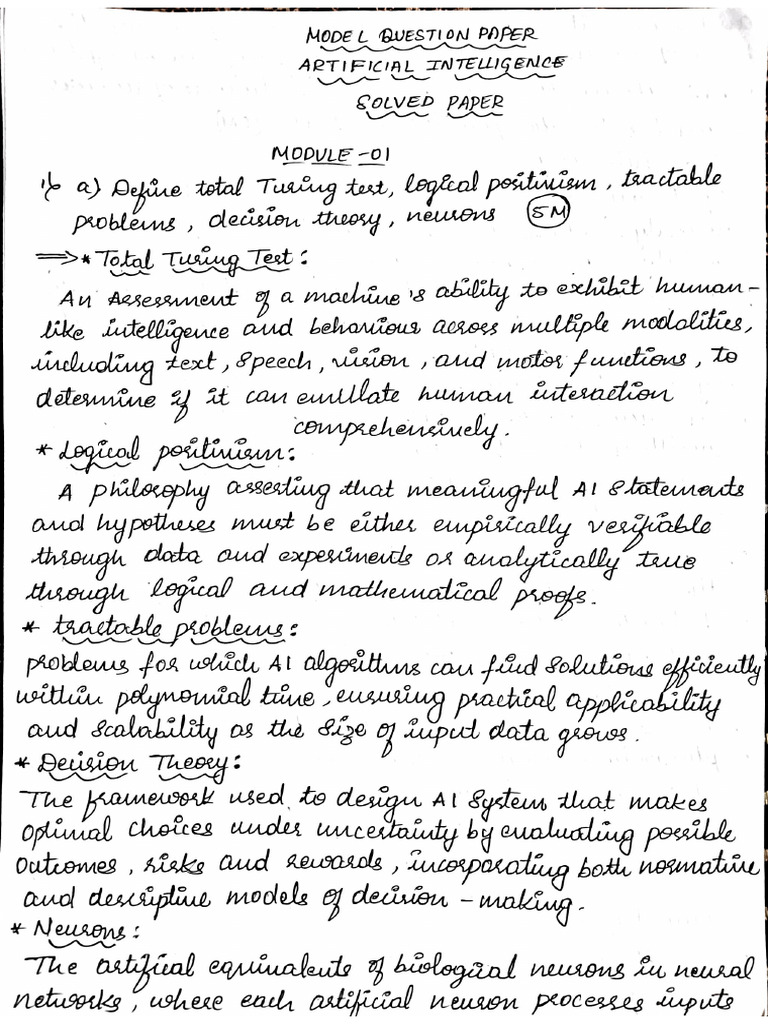 MODEL QUESTION PAPER
ARTIFICIAL INTELLIGENCE
SOLVED PAPER
MODULE -01
1) a) Define total Turing test, logical positivism, tractable
problems, decision theory, neurons (5M)
⟹ * Total Turing Test:
An Assessment of a machine's ability to exhibit human-
like intelligence and behaviour across multiple modalities,
including text, speech, vision, and motor functions, to
determine if it can emullate human interaction
comprehensively.
* Logical positivism:
A philosophy asserting that meaningful AI statements
and hypotheses must be either empirically verifiable
through data and experiments or analytically true
through logical and mathematical proofs.
* tractable problems:
problems for which AI algorithms can find solutions efficiently
within polynomial time, ensuring practical applicability
and scalability as the size of input data grows.
* Decision Theory:
The framework used to design AI System that makes
optimal choices under uncertainty by evaluating possible
outcomes, risks and rewards, incorporating both normative
and descriptive models of decision - making.
* Neurons:
The artifical equivalents of biological neurons in neural
networks, where each artificial neuron processes inputs